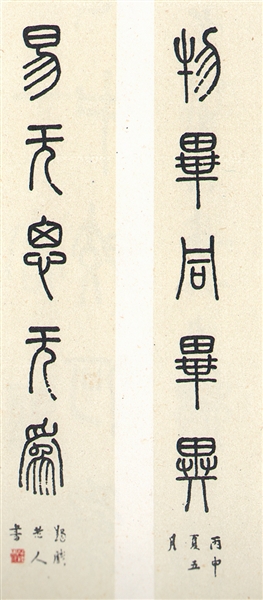 物畢同畢異
丙申
夏五
月
易无思无為
人
書